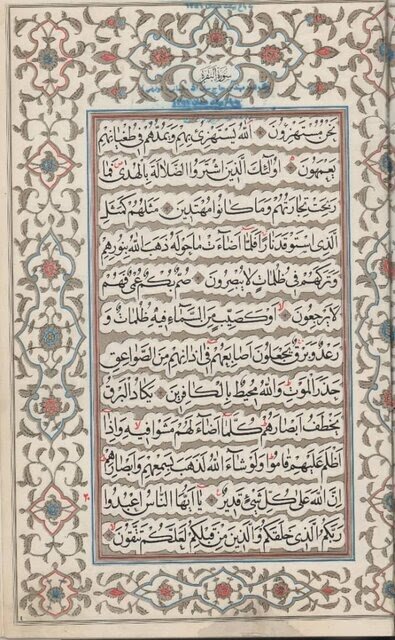 سورة البقرة
نحن مستهزؤن الله يستهزئ بهم ويمدهم في طغيانهم
يعمهون اولئك الذين اشتروا الضلالة بالهدى فما
ربحت تجارتهم وما كانوا مهتدين مثلهم كمثل
الذى استوقد نارا فلما اضاءت ما حوله ذهب الله بنورهم
وتركهم فى ظلمات لا يبصرون صم بكم عمى فهم
لا يرجعون او كصيب من السماء فيه ظلمات و
رعد وبرق يجعلون اصابعهم فى اذانهم من الصواعق
حذر الموت والله محيط بالكافرين يكاد البرق
يخطف ابصارهم كلما اضاء لهم مشوا فيه واذا
اظلم عليهم قاموا ولو شاء الله لذهب بسمعهم وابصارهم
ان الله على كل شئ قدير يا ايها الناس اعبدوا
ربكم الذى خلقكم والذين من قبلكم لعلكم تتقون